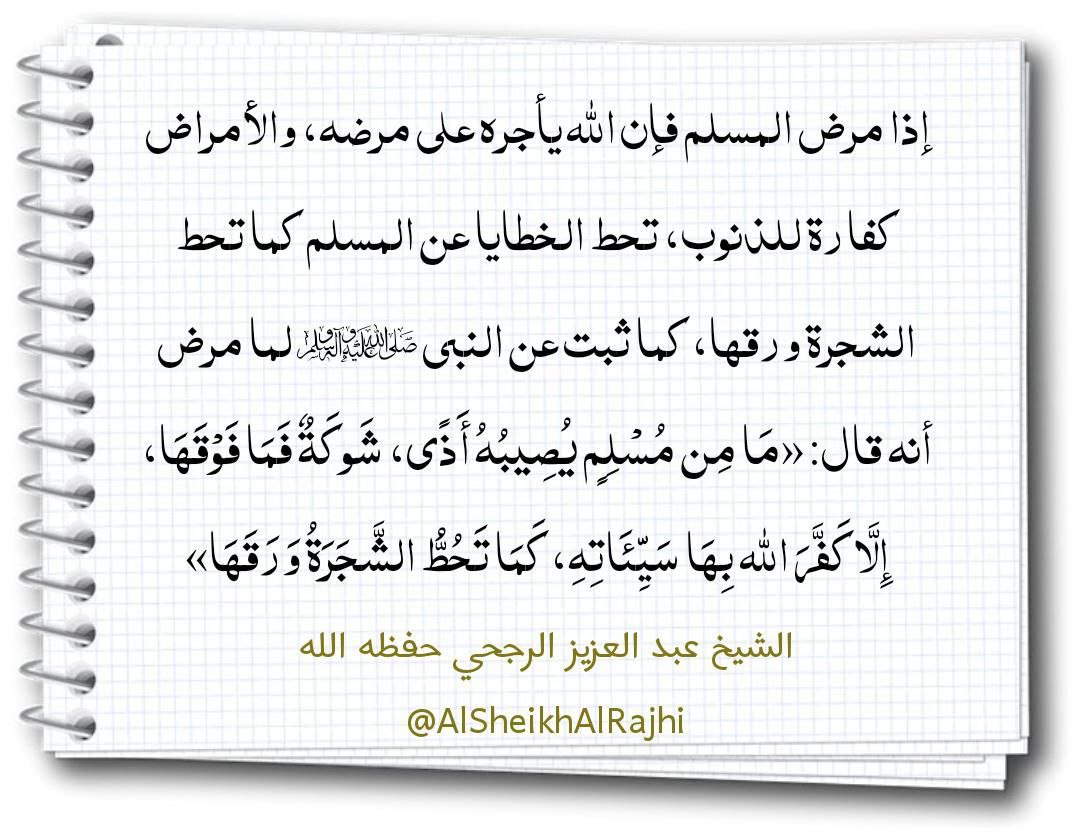 إذا مرض المسلم فإن الله يأجره على مرضه، والأمراض
كفارة للذنوب، تحط الخطايا عن المسلم كما تحط
الشجرة ورقها، كما ثبت عن النبي ﷺ لما مرض
أنه قال: «مَا مِن مُسْلِمٍ يُصِيبُهُ أَذًى، شَوكَةٌ فَمَا فَوْقَهَا،
إِلَّا كَفَّرَ الله بِهَا سَيِّئَاتِهِ، كَمَا تَحُطُّ الشَّجَرَةُ وَرَقَهَا»
الشيخ عبد العزيز الرجحي حفظه الله
@AlSheikhAlRajhi